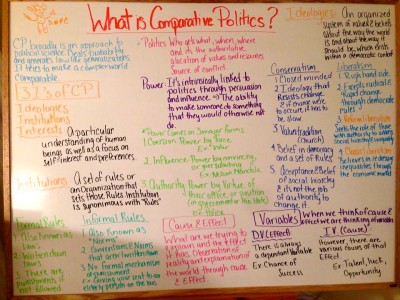 What is Comparative Politics?
CP broadly is an approach to
political science. Deals historically
and generates low
It tries to make a complex world
Comparable
3 I's of CP
Ideologies
Institutions
Interests
A particular
understanding of human
beings as well as a focus on
self interest and preferences.
Institutions
A set of rules or
an Organization that
sets those Rules. Institution
is synonymous with "Rules"
Formal Rules
1 Also known as
2 Written down
laws
3 There are
punishments if
not followed
Informal Rules
1 Also Known as
"Norms"
2 Conventions & Norms
that aren't written down
3 No formal mechanism
of punishment
Ex - Giving your seat to an
elderly person on the bus
Politics: Who gets what, when, where
and it's the authoritative
allocation of values and resources
Source of conflict.
Power: It's intrinsically linked to
politics through persuasion
and influence. The ability
to make someone do something
that they would otherwise not
do.
Power Comes in 3 major forms
1. Coercion Power by Force
Ex. Police
2. Influence Power by convincing
or persuading
Ex. Nelson Mandela
3. Authority Power by Virtue of
their office or position
(in government or the state)
Cause & Effect
What are we trying to
explain and the Effect
it has. Observation of
reality and explanation of
the world through cause
& Effect
Ideologies:
An organized
system of values & beliefs
about the way the world
is and about the way it
should be, which exists
within a democratic context
Conservatism
1 Closed minded
2 Ideology that
Resists change
& if change were
to occur, it has to
be slow
3 Values tradition
(church)
4 Belief in democracy
and a set of Rules
5 Acceptance & Belief
of social hierarchy
& it's not the job
of an authority to
change it.
Liberalism
1 Right hand side
2 Expects radical &
rapid change
through democratic
rules
the role of those
with authority to
social
inequalities through
the economic world
Variables
When we think of cause &
effect we are thinking of variables
DV (Effect)
There is always
a dependent Variable
Ex Chance of
Success
IV (Cause)
However, there
are various causes
of that
Ex. Talent, luck,
Opportunity